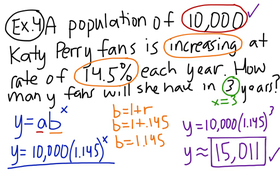 Ex.4) A population of 10,000 ✓
Katy Perry fans is increasing at
rate of 14.5% each year. How
many fans will she have in 3 years?
x=3
y=ab^x
b=1+r
b=1+.145
b=1.145
y=10,000(1.145)^x
y=10,000(1.145)^3
y≈ 15,011 ✓